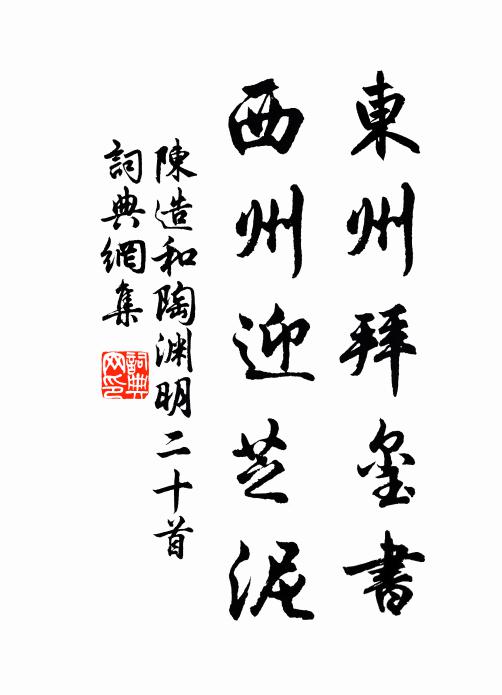 東州拜璽書
西州迎芝泥
陳造和陶渊明二十首
詞典網集
詞典
网印